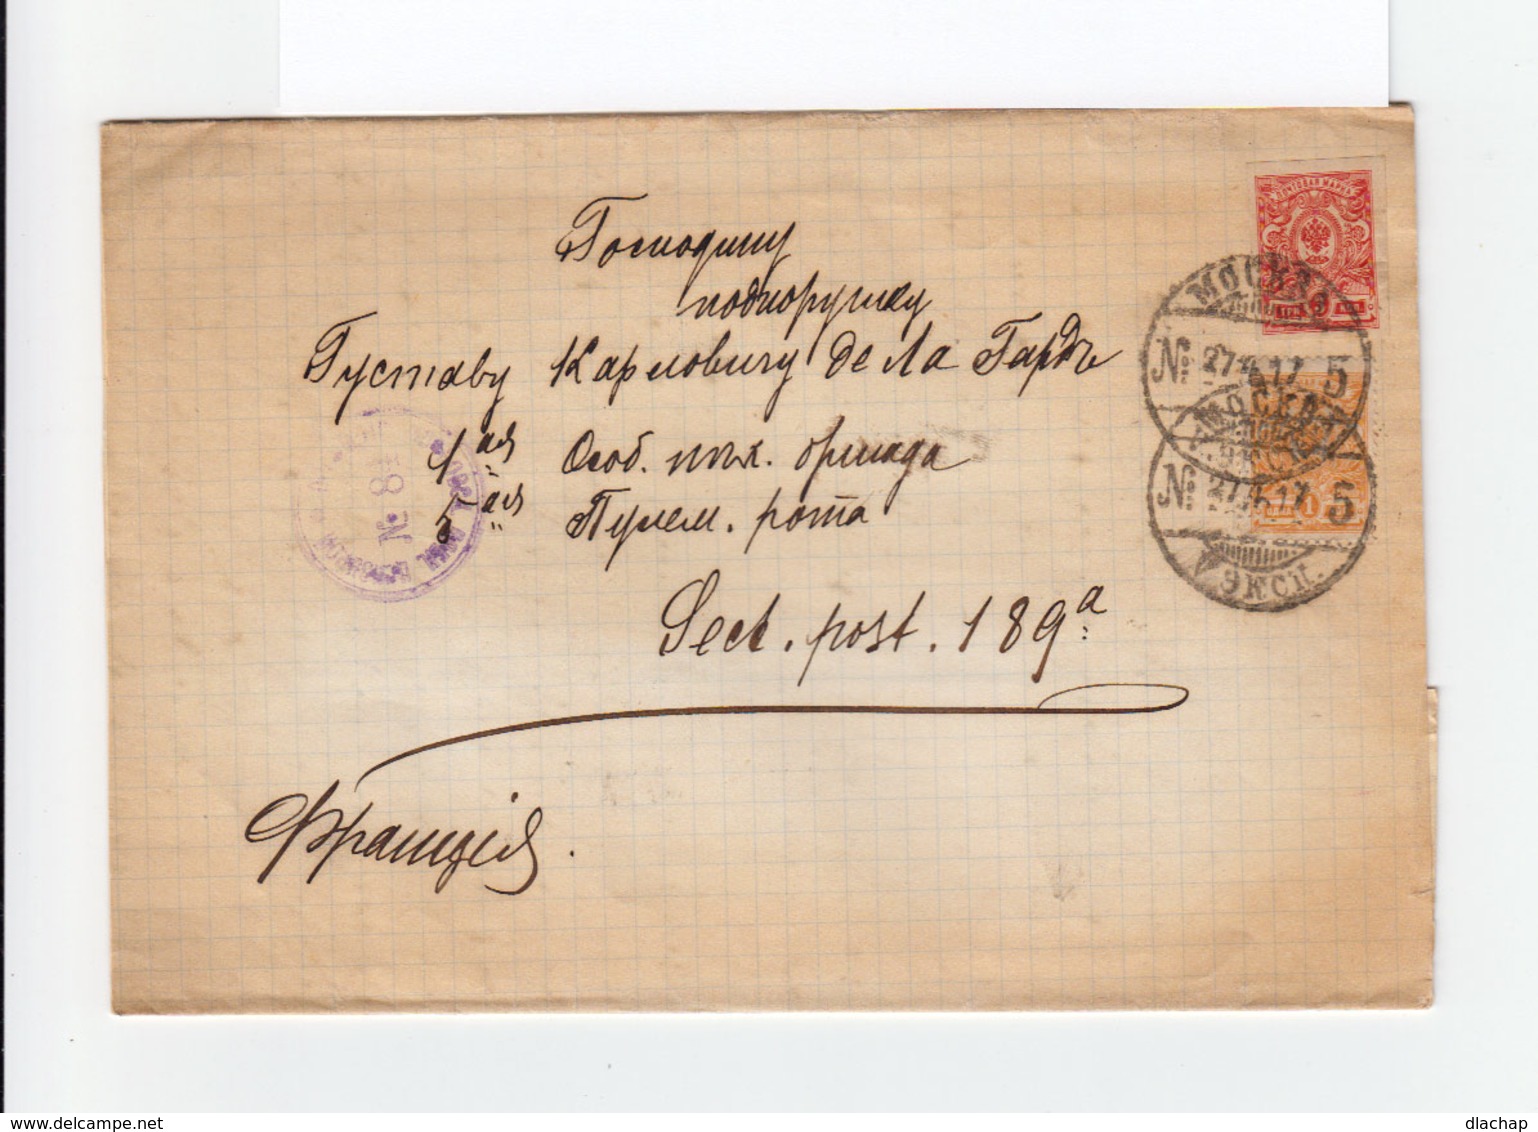 Господину
подпоручику
Густаву Карловичу де Ла Гардъ
1ая Особ. пѣх. бригада
5ая Пулем. рота
Sect. post. 189a
Франція.
ПОЧТОВАЯ МАРКА
ТРИ 3 КОП.
МОСКВА
№ 27.4.17 5
МОСКВА
ЭКСП.
№ 27.4.17 5
1
ЭКСП.
delcampe.net
dlachap